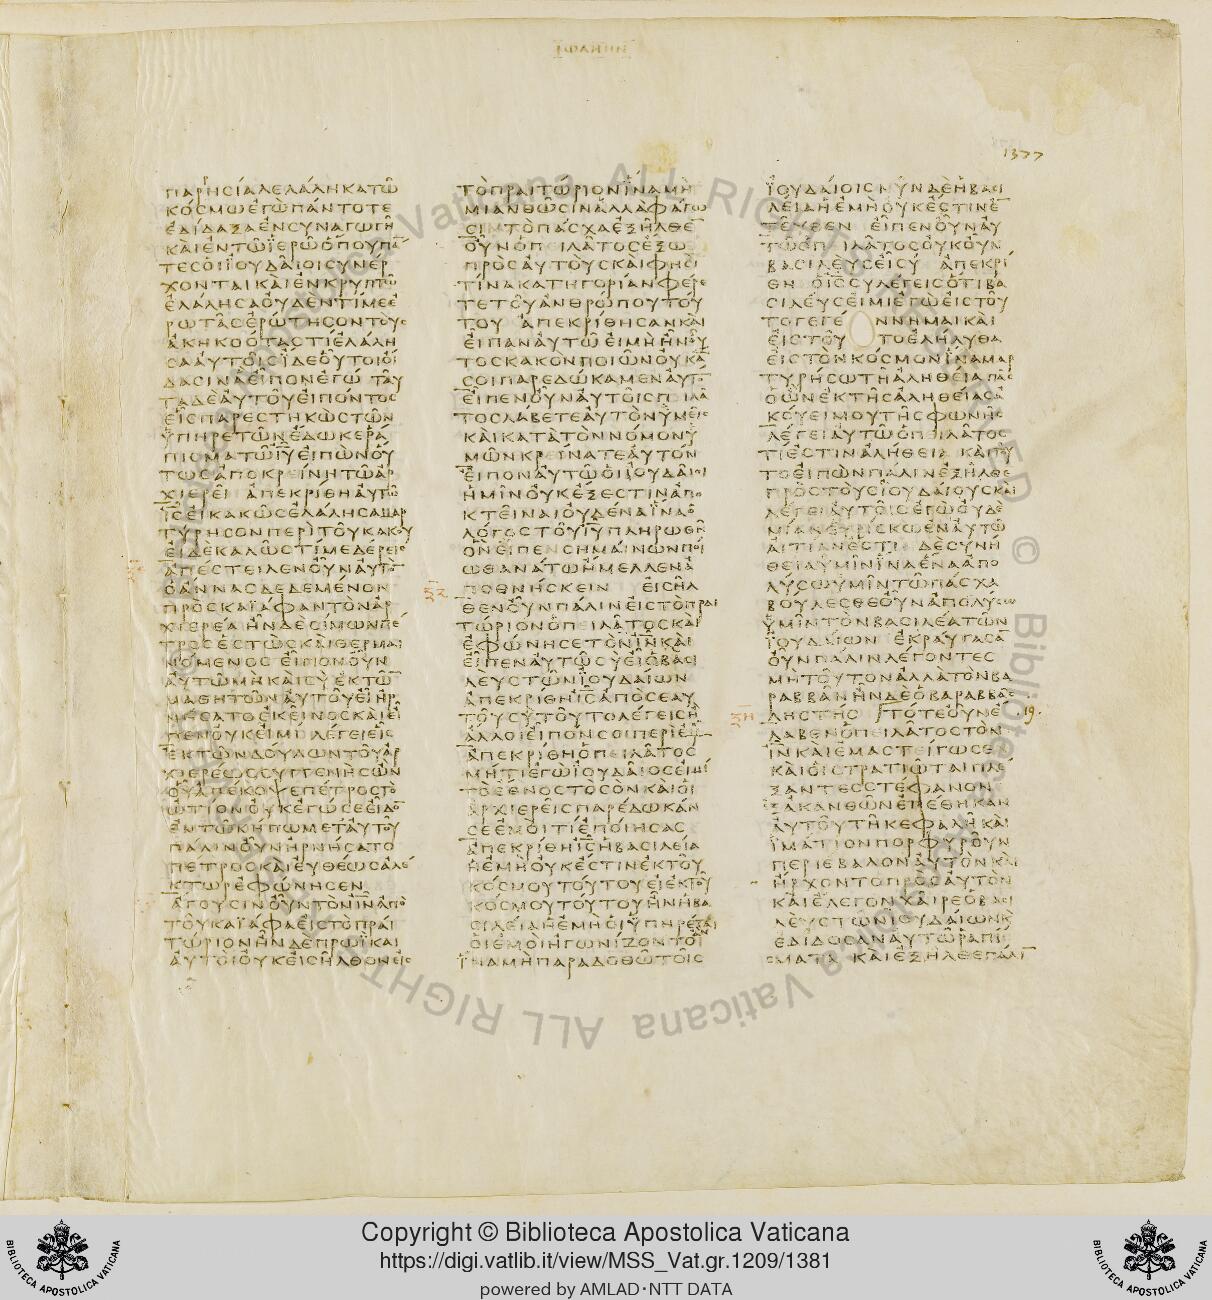 1377
παρησιαλελαληκατω
κοσμωεγωπαντοτε
εδιδαξαενσυναγωγη
καιεντωιερωοπουπα
τεσοιιουδαιοισυνερ
χονταικαιενκρυπτω
ελαλησαουδεντιμεε
ρωτασερωτησοντουσ
ακηκοοταστιελαλη
σααυτοισιδεουτοιοι
δασιναειπονεγω ταυ
ταδεαυτουειποντοσ
εισπαρεστηκωστων
υπηρετωνεδωκερα
πισματωιυειπωνου
τωσαποκρεινητωαρ
χιερει απεκριθηαυτω
ισεικακωσελαλησαμαρ
τυρησονπεριτουκακου
ειδεκαλωστιμεδερεισ
απεστειλενουναυτο
οαννασδεδεμενον
προσκαιαφαντοναρ
χιερεα ηνδεσιμωνπε
τροσεστωσκαιθερμαι
νομενοσ ειπονουν
αυτωμηκαισυεκτω
μαθητωναυτουειηρ
νησατοεκεινοσκαιει
πενουκειμι λεγειεισ
εκτωνδουλωντουαρ
χιερεωσσυγγενησων
ουαπεκοψεπετροστο
ωτιονουκεγωσεειδο
εντωκηπωμεταυτου
παλινουνηρνησατο
πετροσκαιευθεωσαλε
κτωρεφωνησεν
αγουσινουντονιναπο
τουκαιαφαεισ τοπραι
τωριονηνδεπρωικαι
αυτοιουκεισηλθονεισ
τοπραιτωριονιναμη
μιανθωσιναλλαφαγω
σιντοπασχαεξηλθε
ουνοπειλατοσεξω
προσαυτουσκαιφησι
τινακατηγοριανφερε
τετουανθρωπουτου
του απεκριθησανκαι
ειπαναυτωειμηηνου
τοσκακονποιωνουκα
σοιπαρεδωκαμεναυτο
ειπενουναυτοισπειλα
τοσλαβετεαυτονυμεισ
καικατατοννομονυ
μωνκρεινατεαυτον
ειποναυτωοιιουδαιοι
ημινουκεξεστιναπο
κτειναιουδεναιναο
λογοστουιυπληρωθη
ονειπενσημαινωνποι
ωθανατωημελλενα
ποθνησκειν εισηλ
θενουνπαλινεισ τοπραι
τωριονοπειλατοσκαι
εφωνησετονινκαι
ειπεναυτωσυειοβασι
λευστωνιουδαιων
απεκριθηισαποσεαυ
τουσυτουτολεγεισ η
αλλοιειπονσοιπεριεμου
απεκριθηοπειλατοσ
μητιεγωιουδαιοσειμι
τοεθνοστοσονκαιοι
αρχιερεισπαρεδωκαν
σεεμοιτιεποιησασ
απεκριθηισηβασιλεια
ηεμηουκεστινεκτου
κοσμουτουτουειεκτου
κοσμουτουτουηνηβα
σιλειαηεμηοιυπηρεται
οιεμοιηγωνιζοντο
ιναμηπαραδοθωτοισ
ιουδαιοισνυνδεηβασι
λειαηεμηουκεστινε
τευθεν ειπενουναυ
τωοπειλατοσουκουν
βασιλευσεισυ απεκρι
θη οισσυλεγεισοτιβα
σιλευσειμιεγωεισ του
τογεγεννημαικαι
εισ τουτοεληλυθα
εισ τονκοσμονιναμαρ
τυρησωτηαληθειαπασ
οωνεκτησαληθειασα
κουειμουτησφωνησ
λεγειαυτωοπειλατοσ
τιεστιναληθεια καιτου
τοειπωνπαλινεξηλθε
προστουσιουδαιουσκαι
λεγειαυτοισεγωουδε
μιανευρισκωεναυτω
αιτιανεστιδεσυνη
θειαυμιναιναενααπο
λυσωυμιντωπασχα
βουλεσθεουναπολυσω
υμιντονβασιλεατων
ιουδαιων εκραυγασα
ουνπαλινλεγοντεσ
μητουτοναλλατονβα
ραββανηνδεοβαραββασ
ληστησ τοτεουνε
λαβενοπειλατοστον
ινκαιεμαστειγωσε
καιοιστρατιωταιπλε
ξαντεσστεφανον
εξακανθωνεπεθηκαν
αυτουτηκεφαληκαι
ιματιονπορφυρουν
περιεβαλοναυτονκαι
ηρχοντοπροσαυτον
καιελεγονχαιρεοβασι
λευστωνιουδαιωνκ
εδιδοσαναυτωραπι
σματα καιεξηλθεπαλι
Copyright © Biblioteca Apostolica Vaticana
https://digi.vatlib.it/view/MSS_Vat.gr.1209/1381
powered by AMLAD·NTT DATA